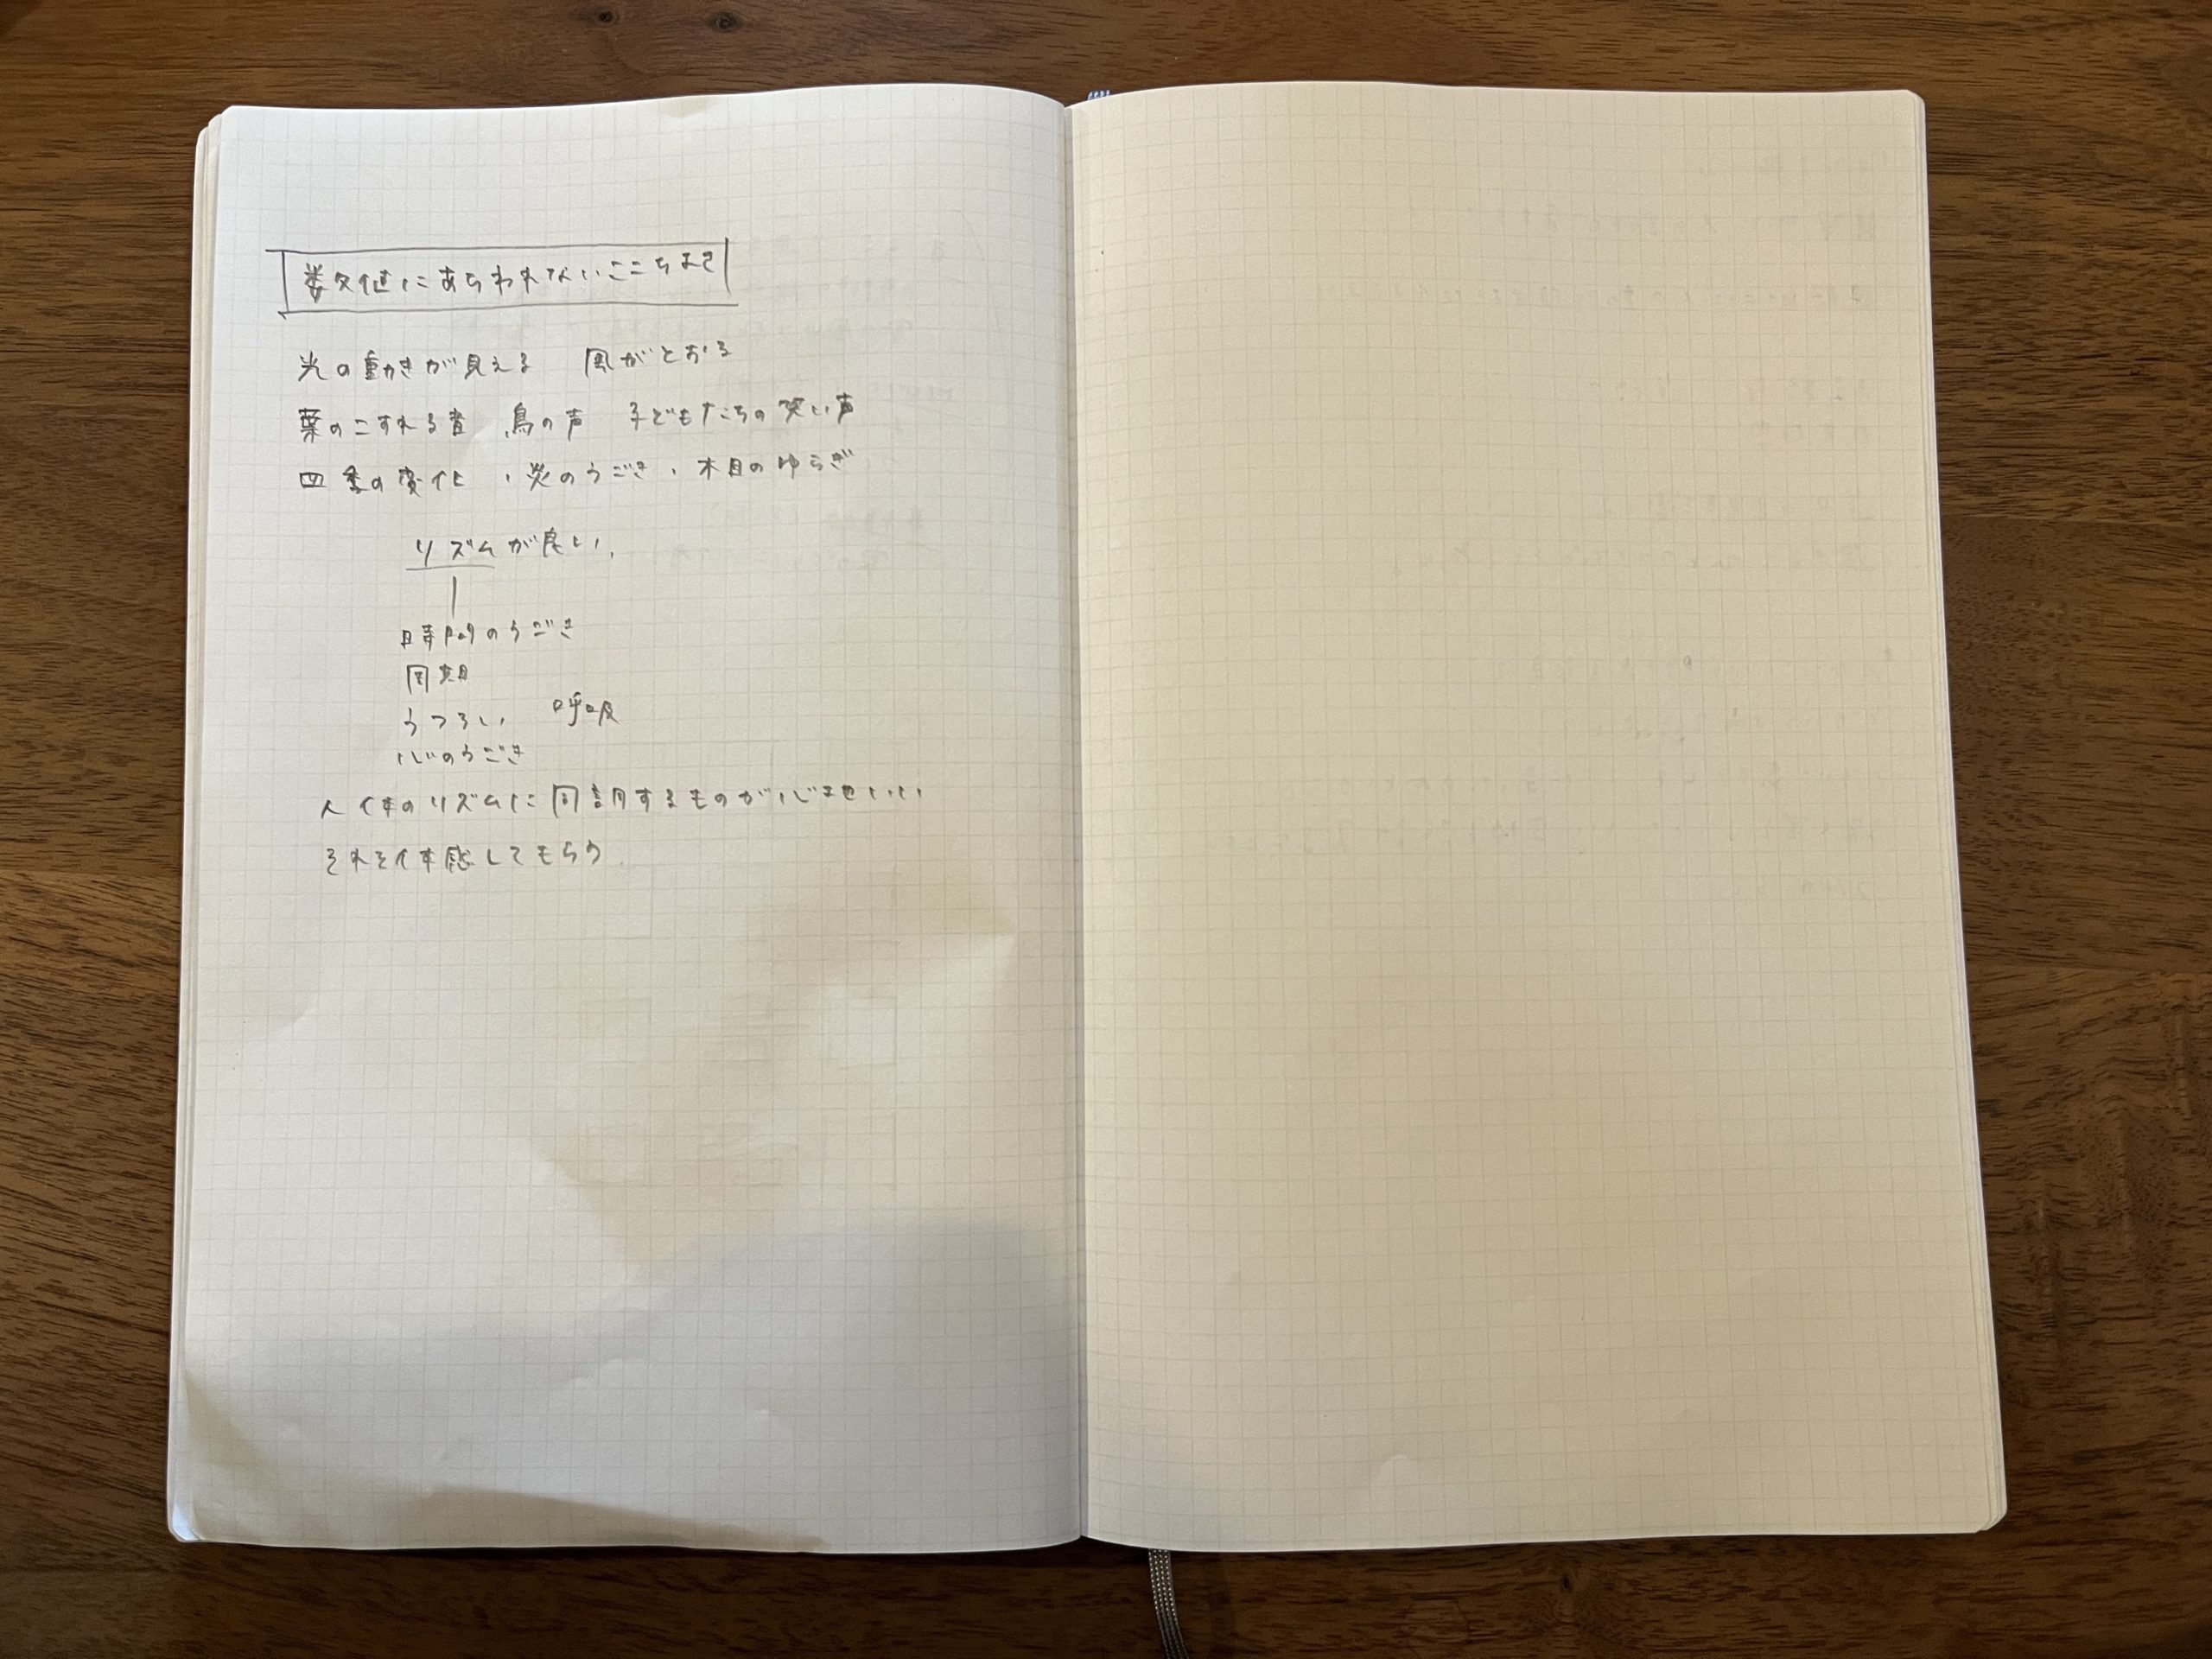 数値にあらわれないここちよさ
光の動きが見える　風がとおる
葉のこすれる音　鳥の声　子どもたちの笑い声
四季の変化　・炎のうごき・木目のゆらぎ
リズムが良い、
時間のうごき
同期
うつろい　呼吸
心のうごき
人体のリズムに同調するものが心ませいい
それを体感してもらう